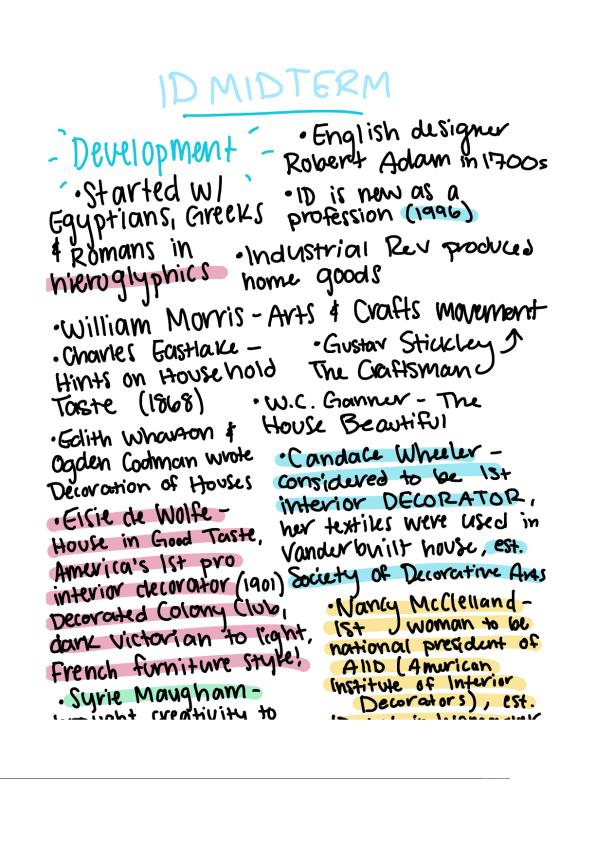 ID MIDTERM
Development
• Started w/
Egyptians, Greeks
& Romans in
hieroglyphics
• English designer
Robert Adam in 1700s
• ID is new as a
profession (1996)
• Industrial Rev produced
home goods
• William Morris - Arts & Crafts movement
• Charles Eastlake -
Hints on Household
Taste (1868)
• Gustav Stickley
The Craftsman
• W.C. Ganner - The
House Beautiful
• Edith Wharton &
Ogden Codman wrote
Decoration of Houses
• Candace Wheeler -
considered to be 1st
interior DECORATOR,
her textiles were used in
Vanderbuilt house, est.
Society of Decorative Arts
• Elsie de Wolfe -
House in Good Taste,
America's 1st pro
interior decorator (1901)
Decorated Colony Club,
dark Victorian to light,
French furniture style!
• Nancy McClelland -
1st woman to be
national president of
AIID (American
Institute of Interior
Decorators), est.
• Syrie Maugham -
brought creativity to